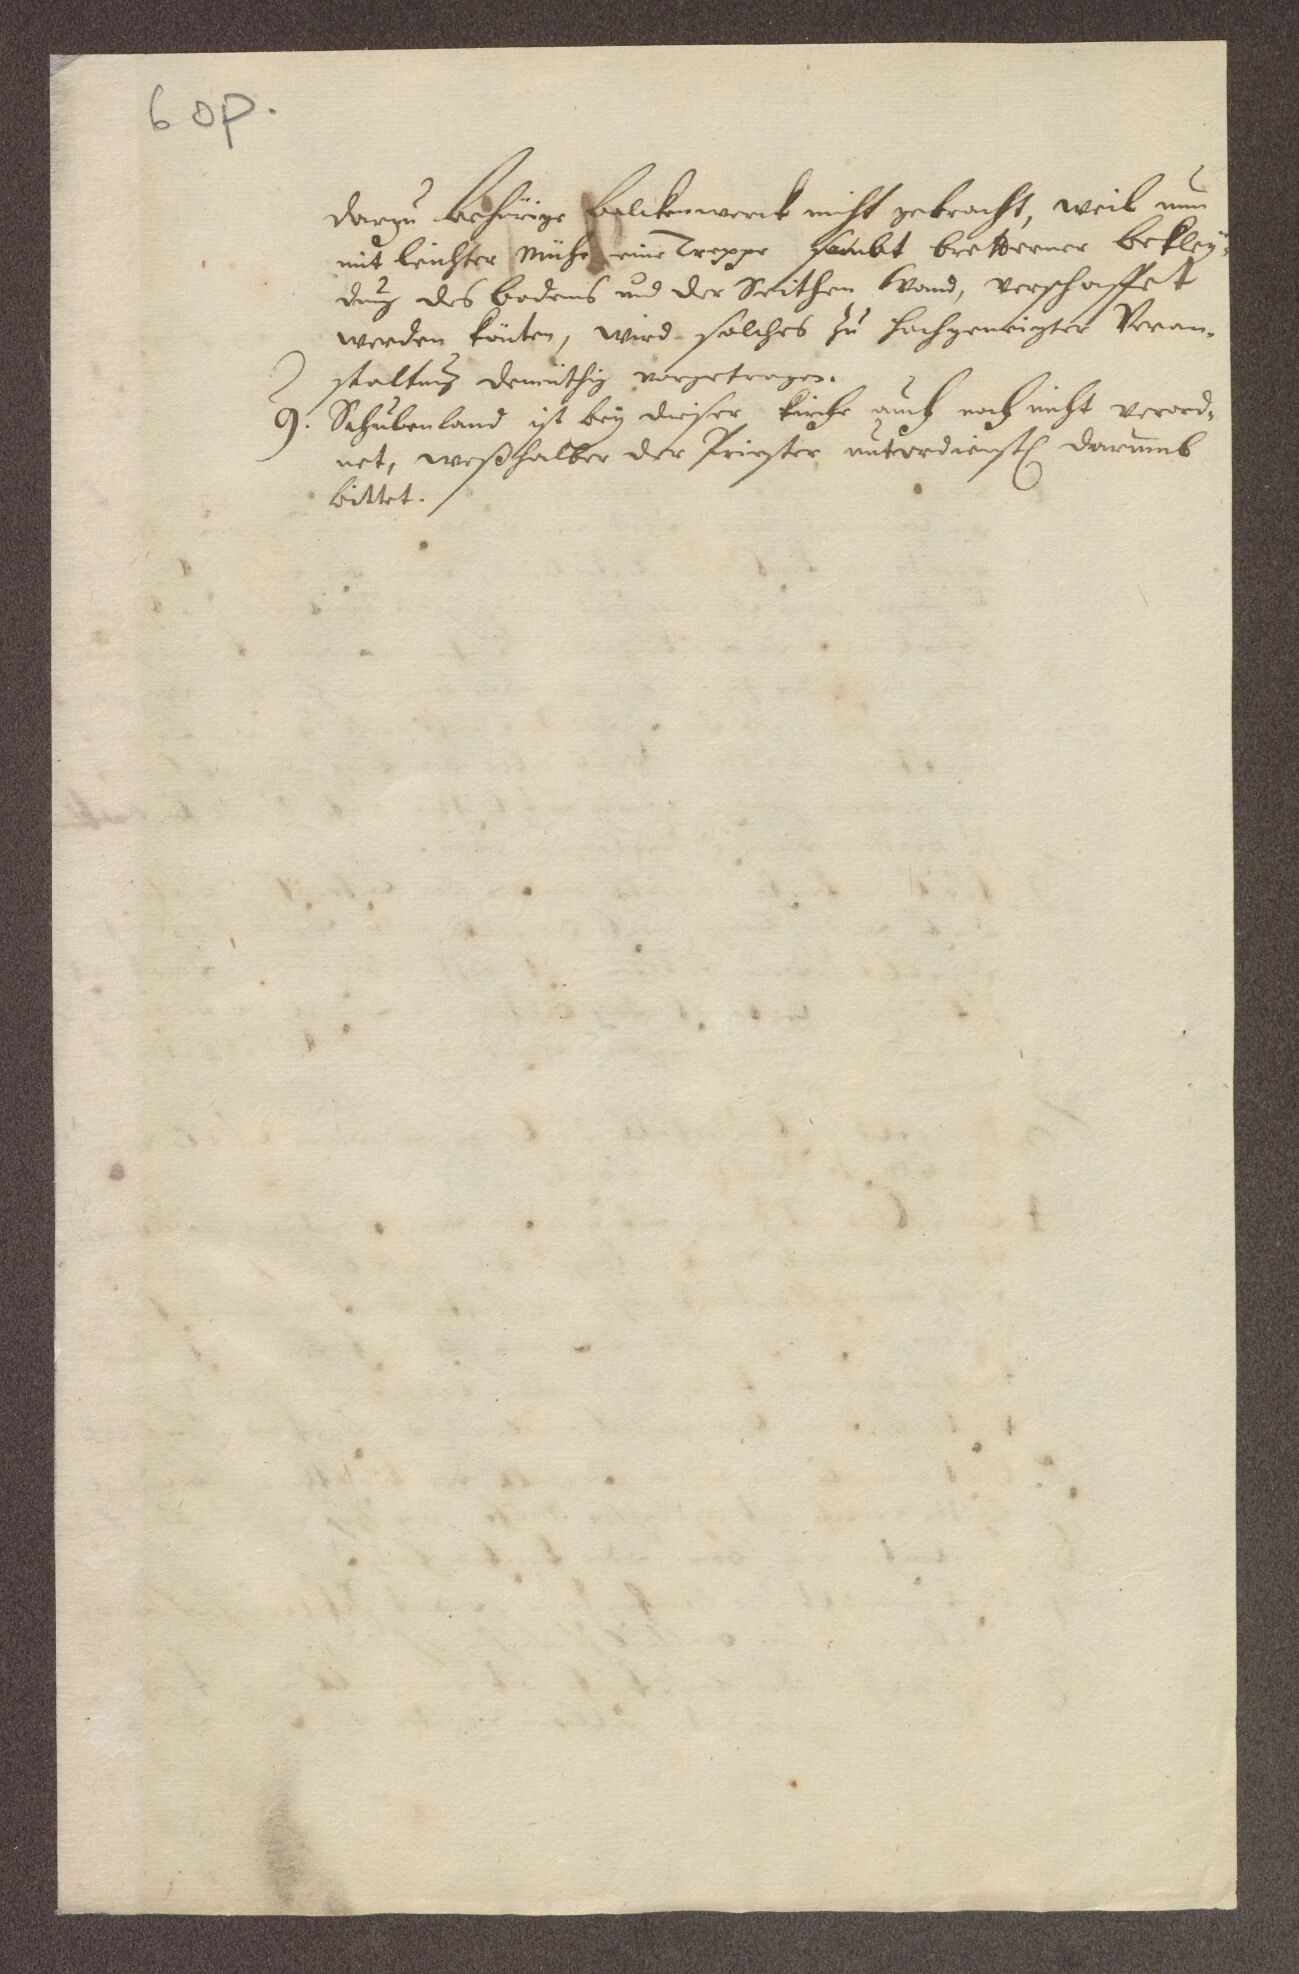 6 op.
darzu behörige balckenwerck nicht gebracht, weil nun
mit leichter Mühe eine Treppe sambt bretterner bekley-
dung des bodens und der Seithen Wand, verschaffet
werden könten, wird solches zu hochgeneigter Veran-
staltung demüthig vorgetragen.
9. Schulenland ist bey dieser Kirche auch noch nicht verord-
net, weßhalber der Priester unterdienstl darumb
bittet.